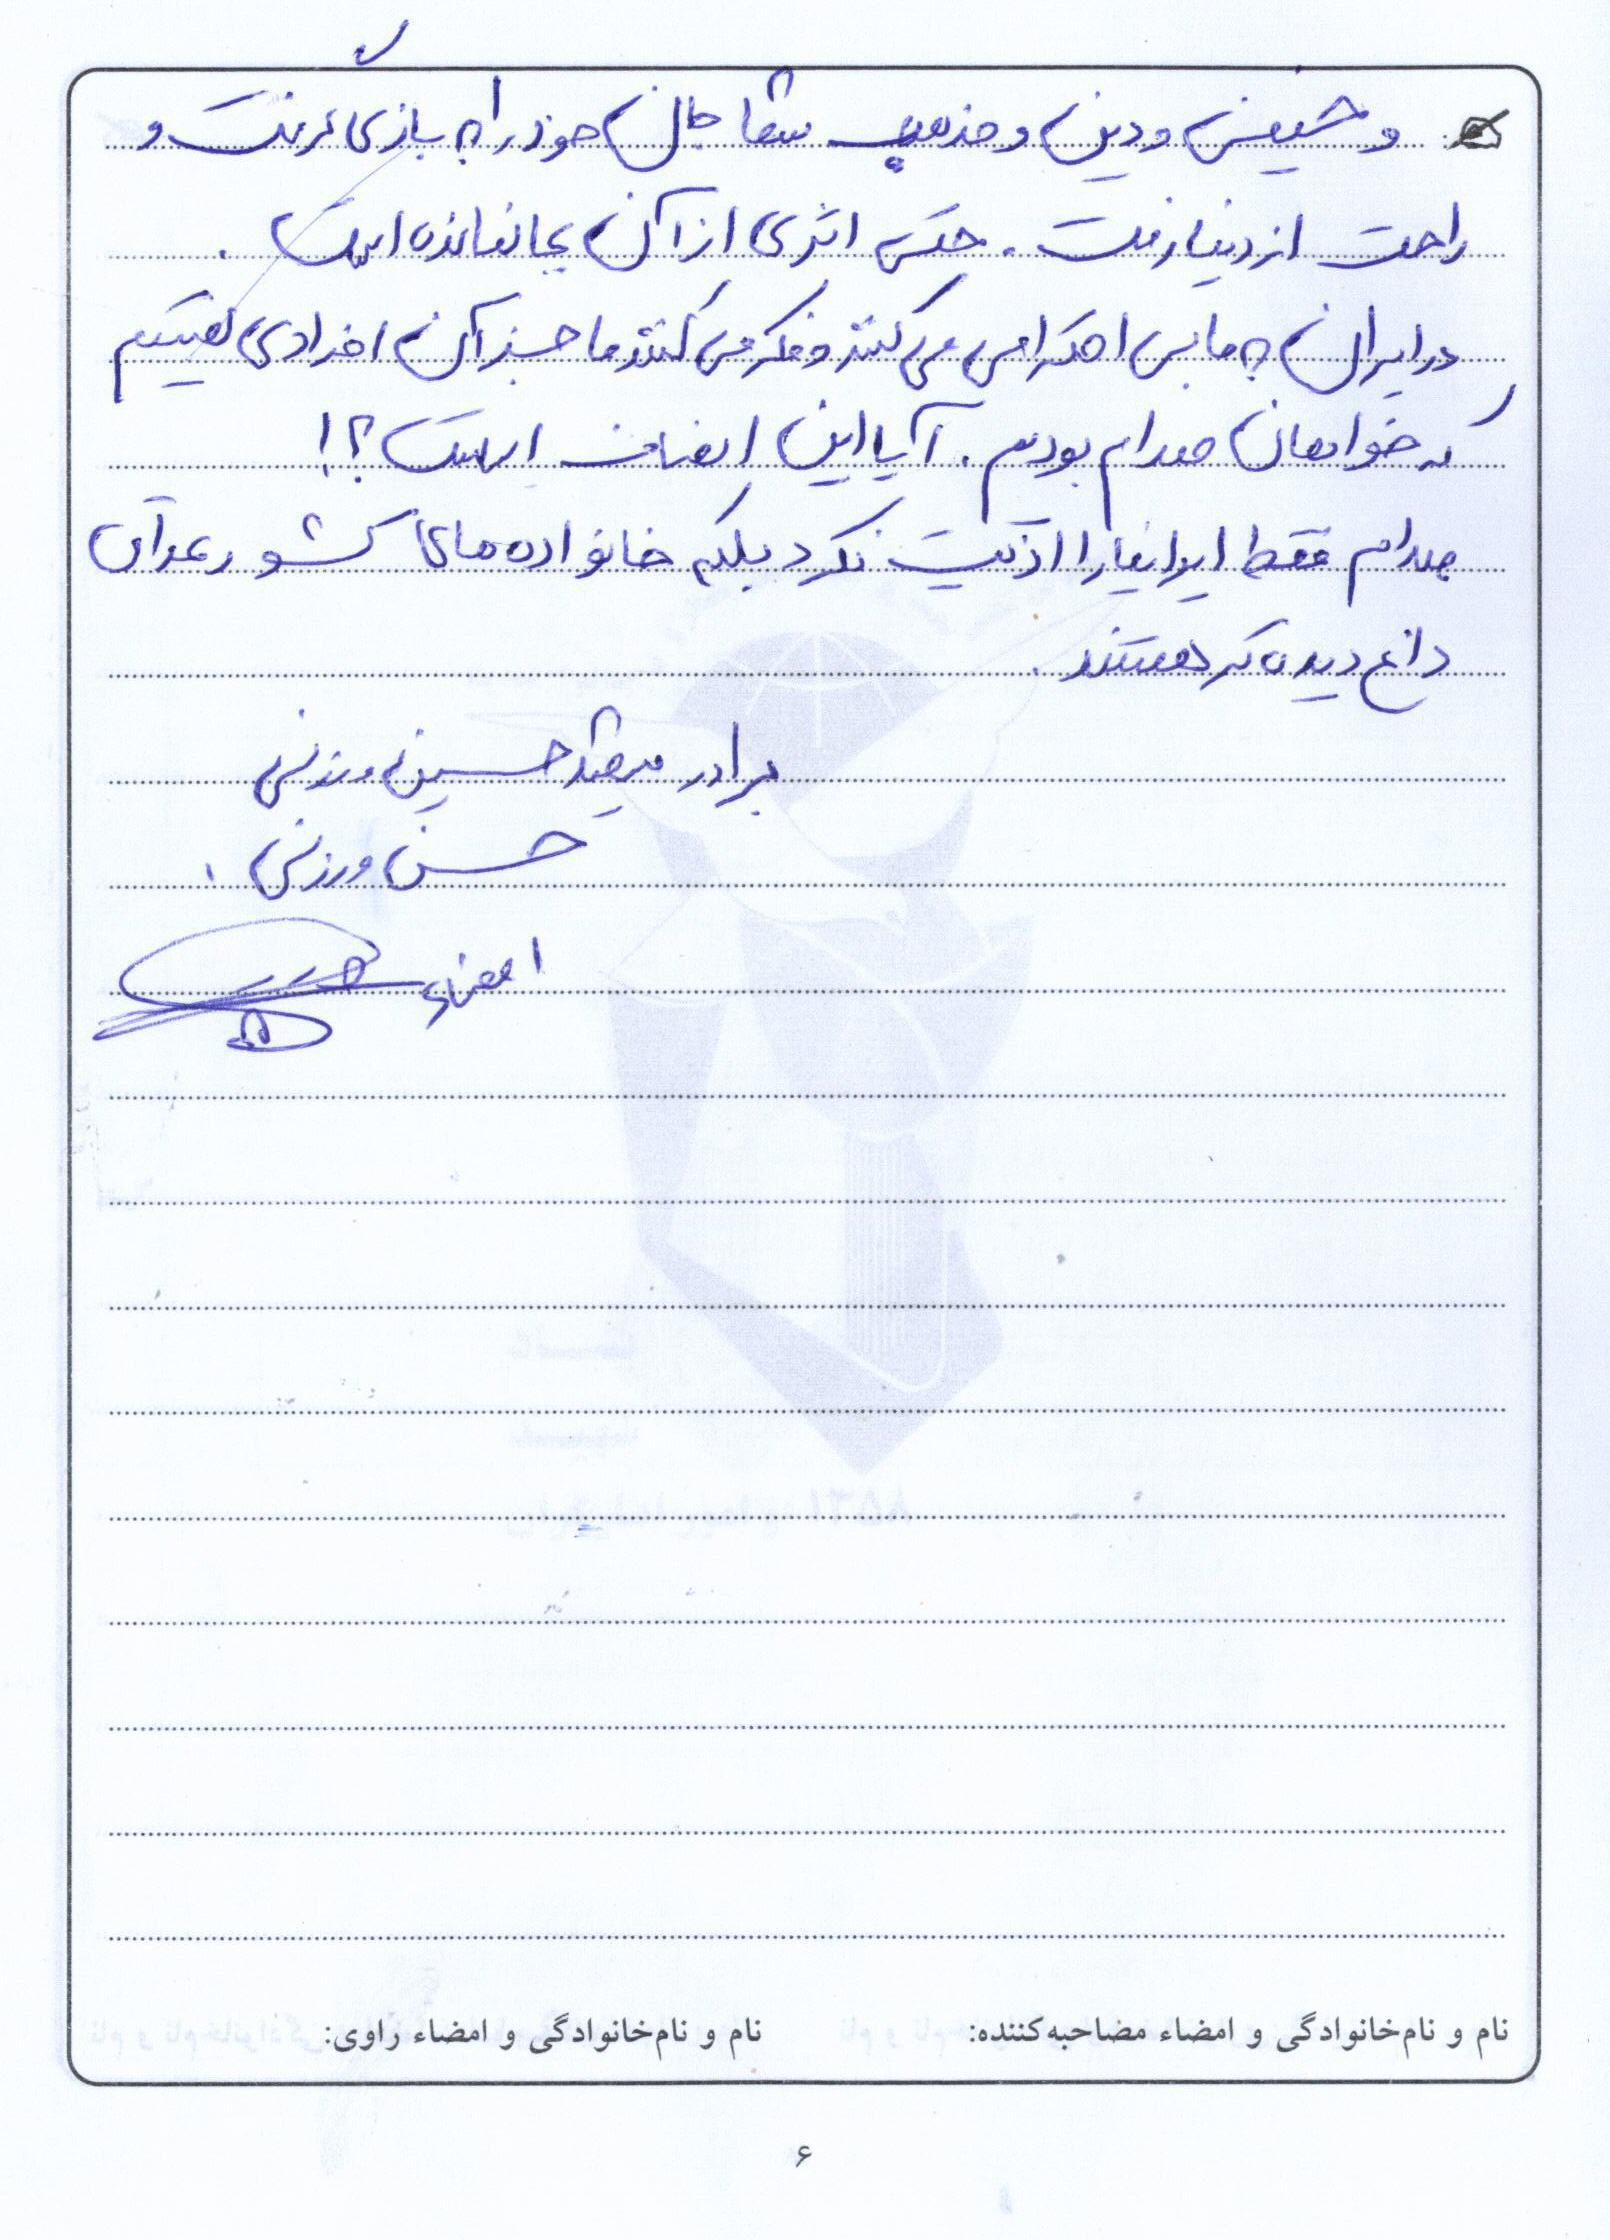 و خمینی و دین و مذهب شما جان خود را به بازی گرفت و
راحت از دنیا رفت. حتی اثری از آن بجا نمانده است.
در ایران به ما بی احترامی می کنند و فکر می کنند ما جز آن افرادی هستیم
که خواهان صدام بودیم. آیا این انصاف است؟!
صدام فقط ایرانیها را اذیت نکرد بلکه خانواده های کشور عراق
داغ دیده تر هستند.
برادر شهید حسین ورزنی
حسن ورزنی.
امضاء
نام و نام‌خانوادگی و امضاء مصاحبه‌کننده: نام و نام‌خانوادگی و امضاء راوی:
۶